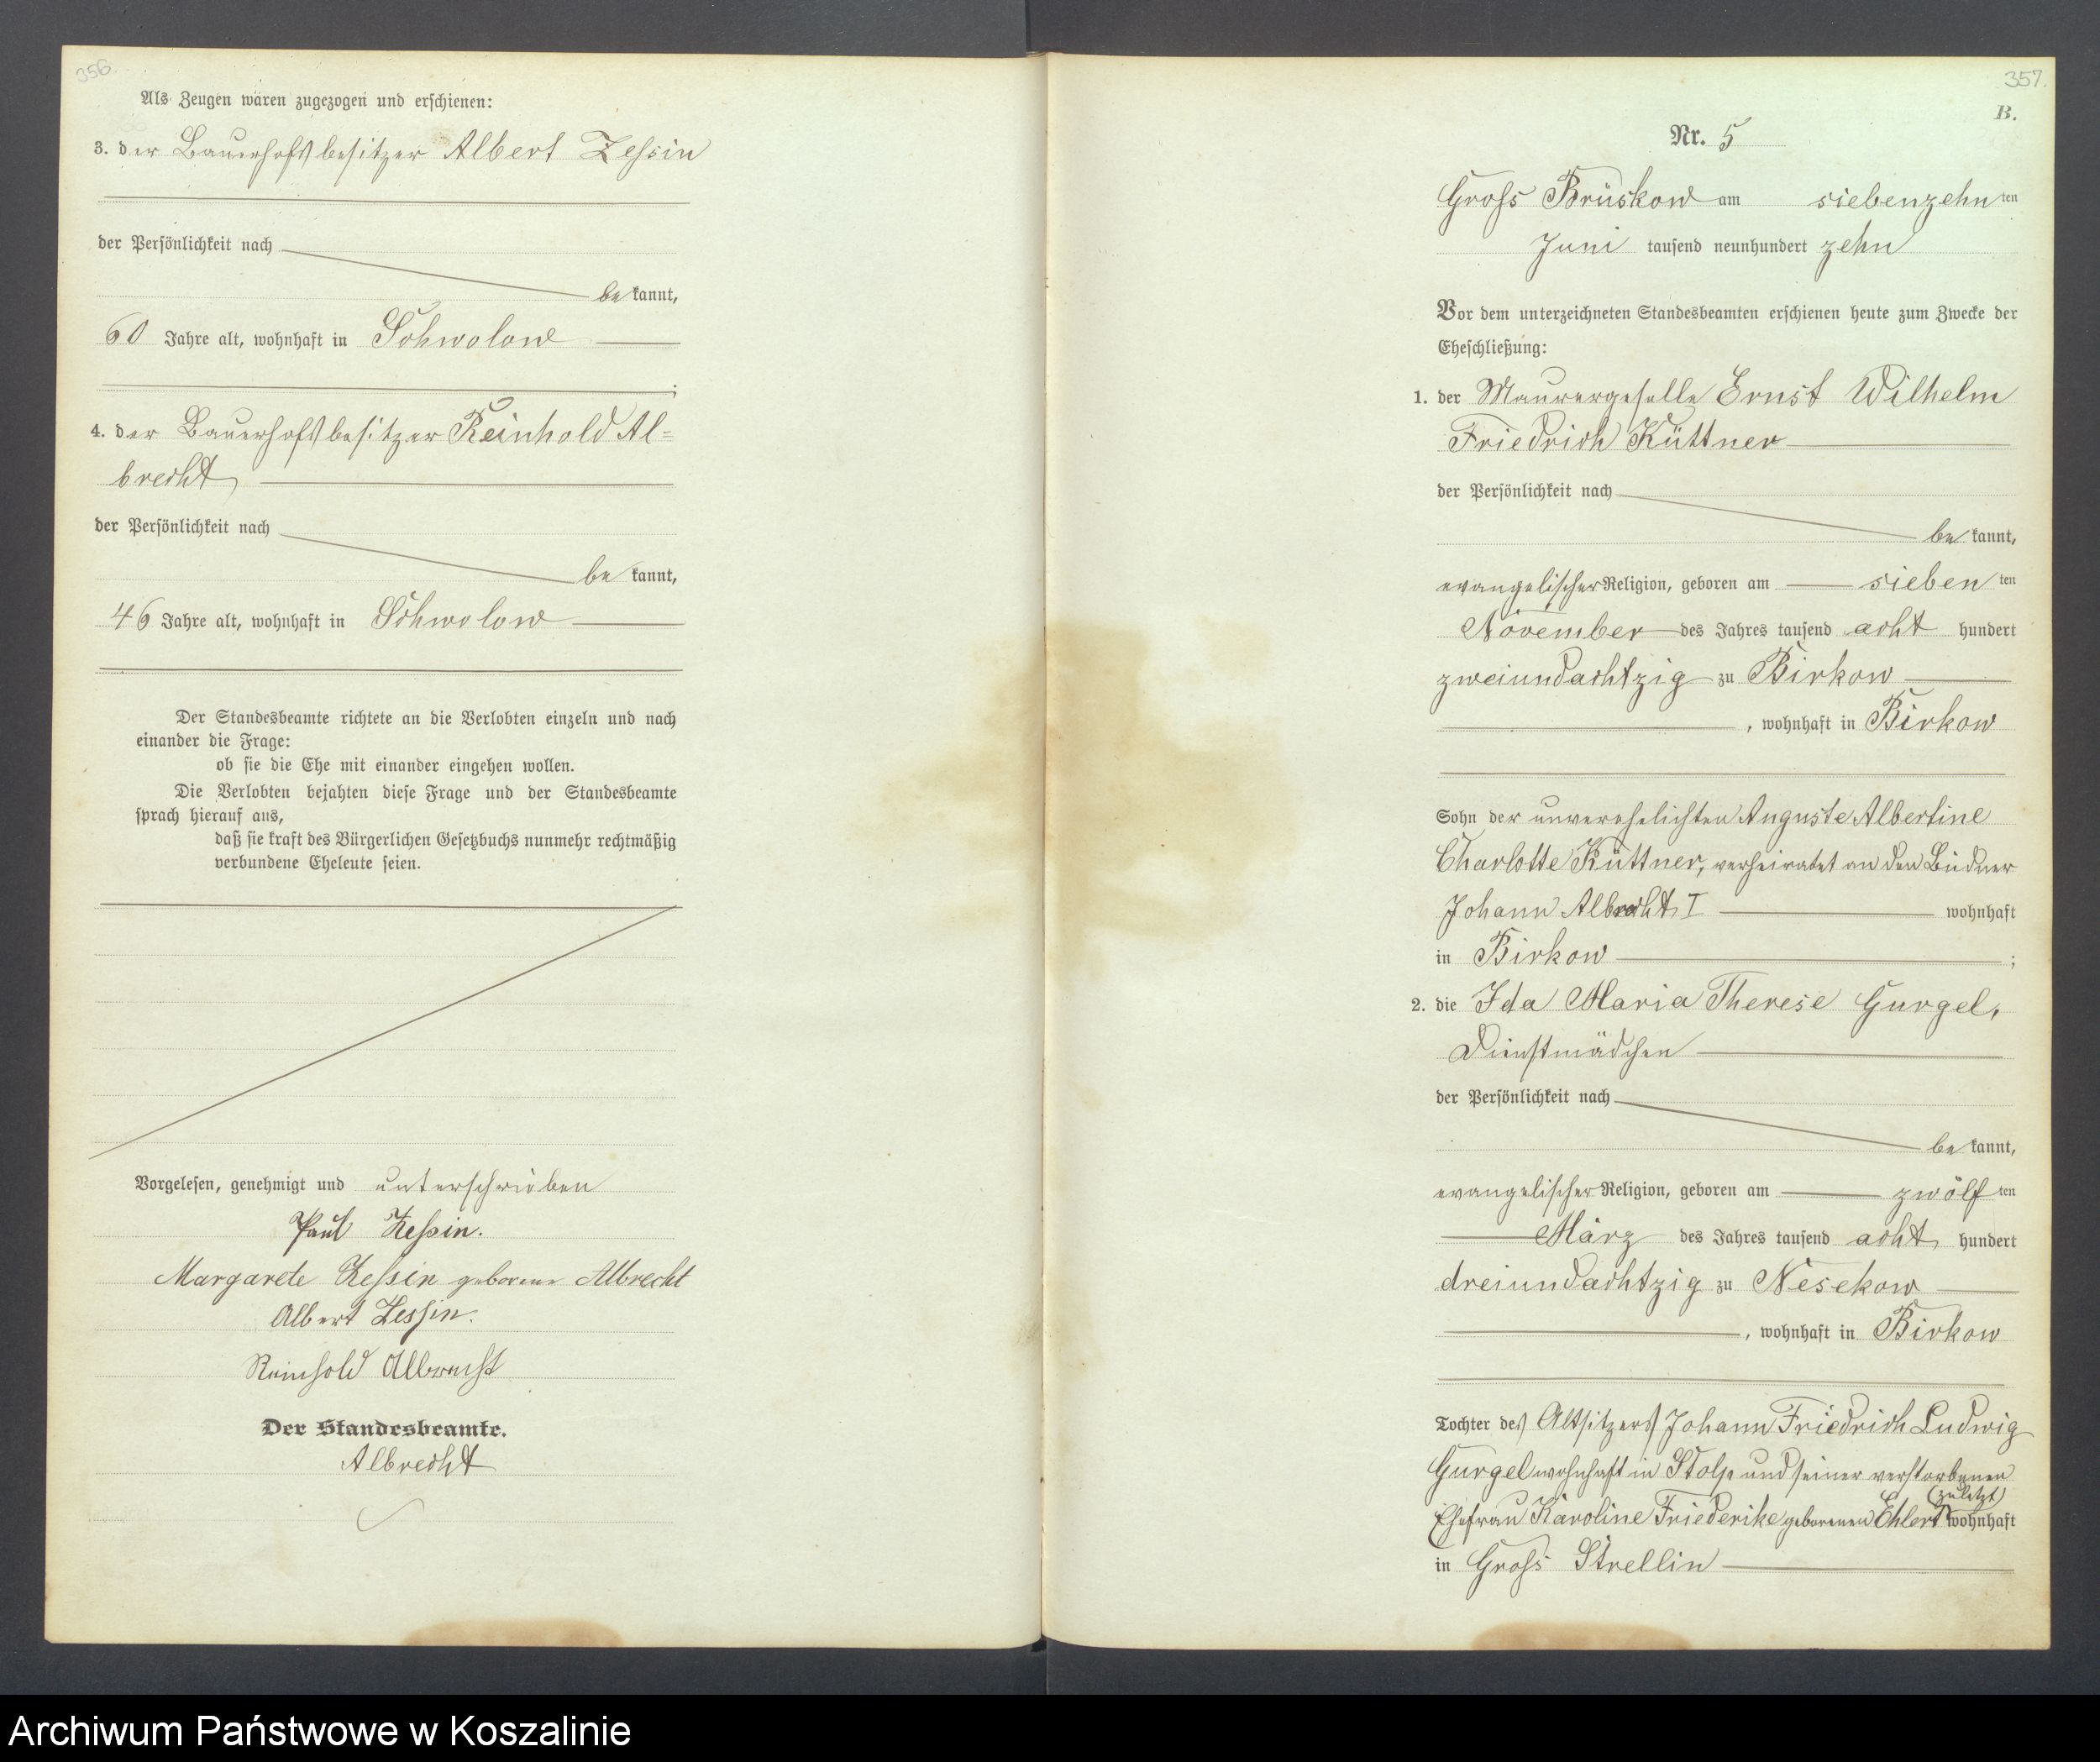 356.
Als Zeugen waren zugezogen und erschienen:
3. der Bauerhofsbesitzer Albert Zessin
der Persönlichkeit nach
bekannt,
60 Jahre alt, wohnhaft in Schwolow
;
4. der Bauerhofsbesitzer Reinhold Al=
brecht
der Persönlichkeit nach
bekannt,
46 Jahre alt, wohnhaft in Schwolow
Der Standesbeamte richtete an die Verlobten einzeln und nach
einander die Frage:
ob sie die Ehe mit einander eingehen wollen.
Die Verlobten bejahten diese Frage und der Standesbeamte
sprach hierauf aus,
daß sie kraft des Bürgerlichen Gesetzbuchs nunmehr rechtmäßig
verbundene Eheleute seien.
Vorgelesen, genehmigt und unterschrieben
Paul Zessin.
Margarete Zessin geborene Albrecht
Albert Zessin.
Reinhold Albrecht
Der Standesbeamte.
Albrecht
357.
B.
Nr. 5
Gross Brüskow am siebenzehnten
Juni tausend neunhundert zehn
Vor dem unterzeichneten Standesbeamten erschienen heute zum Zwecke der
Eheschließung:
1. der Maurergeselle Ernst Wilhelm
Friedrich Küttner
der Persönlichkeit nach
bekannt,
evangelischer Religion, geboren am siebenten
November des Jahres tausend acht hundert
zweiundachtzig zu Birkow
, wohnhaft in Birkow
Sohn der unverehelichten Auguste Albertine
Charlotte Küttner, verheiratet an den Büdner
Johann Albrecht I wohnhaft
in Birkow ;
2. die Ida Maria Therese Gurgel,
Dienstmädchen
der Persönlichkeit nach
bekannt,
evangelischer Religion, geboren am zwölften
März des Jahres tausend acht hundert
dreiundachtzig zu Nesekow
, wohnhaft in Birkow
Tochter des Altsitzers Johann Friedrich Ludwig
Gurgel wohnhaft in Stolp und seiner verstorbenen
(zuletzt)
Ehefrau Karoline Friederike geborenen Ehlert wohnhaft
in Gross Strellin
Archiwum Państwowe w Koszalinie